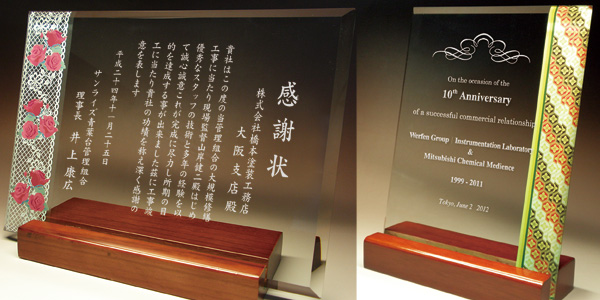 感謝状
株式会社橋本塗装工務店
大阪支店殿
貴社はこの度の当管理組合の大規模修繕
工事に当たり現場監督山岸健二殿はじめ
優秀なスタッフの技術と多年の経験を以
て誠心誠意これが完成に尽力し所期の目
的を達成する事が出来ました茲に工事竣
工に当たり貴社の功績を称え深く感謝の
意を表します
平成二十四年十一月二十五日
サンライズ青葉台管理組合
理事長 井上康広
On the occasion of the
10th Anniversary
of a successful commercial relationship
Werfen Group Instrumentation Laboratory
&
Mitsubishi Chemical Medience
1999 - 2011
Tokyo, June 2 2012